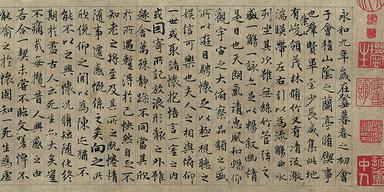 永和九年歲在癸丑暮春之初會
于會稽山陰之蘭亭脩禊事
也群賢畢至少長咸集此地
有崇山峻領茂林脩竹又有清流激
湍暎帶左右引以為流觴曲水
列坐其次雖無絲竹管弦之
盛一觴一詠亦足以暢敘幽情
是日也天朗氣清惠風和暢仰
觀宇宙之大俯察品類之盛
所以遊目騁懷足以極視聽之
娛信可樂也夫人之相與俯仰
一世或取諸懷抱悟言一室之內
或因寄所託放浪形骸之外雖
趣舍萬殊靜躁不同當其欣
於所遇暫得於己怏然自足不
知老之將至及其所之既惓情
隨事遷感慨係之矣向之所
欣俛仰之間以為陳迹猶不
能不以之興懷況脩短隨化終
期於盡古人云死生亦大矣豈
不痛哉每攬昔人興感之由
若合一契未嘗不臨文嗟悼不
能喻之於懷固知一死生為虛